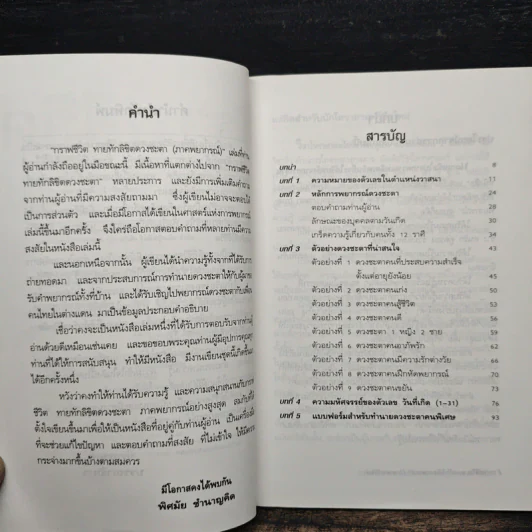 คำนำ
"กราฟชีวิต ทายทักลิขิตดวงชะตา (ภาคพยากรณ์)" เล่มที่ท่าน
ผู้อ่านกำลังถืออยู่ในมือขณะนี้ มีเนื้อหาที่แตกต่างไปจาก "กราฟชีวิต
ทายทักลิขิตดวงชะตา" หลายประการ และยังมีการเพิ่มเติมคำถาม
จากท่านผู้อ่านที่มีความสงสัยถามมา ซึ่งผู้เขียนไม่อาจจะตอบได้
เป็นการส่วนตัว และเมื่อมีโอกาสได้เขียนในศาสตร์แห่งการพยากรณ์
เล่มนี้ขึ้นมาอีกครั้ง จึงใคร่ถือโอกาสตอบคำถามที่หลายท่านมีความ
สงสัยในหนังสือเล่มนี้
และนอกเหนือจากนั้น ผู้เขียนได้นำความรู้ทั้งจากที่ได้รับการ
ถ่ายทอดมา และจากประสบการณ์การทำนายดวงชะตาให้กับผู้มา
รับคำพยากรณ์ทั้งที่บ้าน และได้รับเชิญไปพยากรณ์ดวงชะตากับเพื่อน
คนไทยในต่างแดน มาเป็นข้อมูลประกอบคำอธิบาย
เชื่อว่าคงจะเป็นหนังสือเล่มหนึ่งที่ได้รับการตอบรับจากท่านผู้
อ่านด้วยดีเหมือนเช่นเคย และขอขอบพระคุณท่านผู้มีอุปการคุณทุก
ท่านที่ได้ให้การสนับสนุน ทำให้มีหนังสือ มีงานเขียนชุดนี้เกิดขึ้นมา
ได้อีกครั้งหนึ่ง
หวังว่าคงทำให้ท่านได้รับความรู้ และความสนุกสนานกับกราฟ
ชีวิต ทายทักลิขิตดวงชะตา ภาคพยากรณ์อย่างสูงสุด สมกับที่ได้
ตั้งใจเขียนขึ้นมาเพื่อให้เป็นหนังสือที่อยู่คู่กับท่านผู้อ่าน เป็นเครื่องมือ
ที่จะช่วยแก้ไขปัญหา และตอบคำถามที่สงสัย ที่ไม่เข้าใจ ให้มีความ
กระจ่างมากขึ้นบ้างตามสมควร
มีโอกาสคงได้พบกัน
พิศมัย ชำนาญคิด
สารบัญ
บทนำ 9
บทที่ 1 ความหมายของตัวเลขในตำแหน่งวาสนา 11
บทที่ 2 หลักการพยากรณ์ดวงชะตา 24
ตอบคำถามท่านผู้อ่าน 28
ลักษณะของบุคคลตามวันเกิด 30
เกร็ดความรู้เกี่ยวกับคนทั้ง 12 ราศี 34
บทที่ 3 ตัวอย่างดวงชะตาที่น่าสนใจ 43
ตัวอย่างที่ 1 ดวงชะตาคนที่ประสบความสำเร็จ
ตั้งแต่อายุยังน้อย 45
ตัวอย่างที่ 2 ดวงชะตาคนเก่ง 48
ตัวอย่างที่ 3 ดวงชะตาคนสู้ชีวิต 50
ตัวอย่างที่ 4 ดวงชะตาคนดี 56
ตัวอย่างที่ 5 ดวงชะตา 1 หญิง 2 ชาย 58
ตัวอย่างที่ 6 ดวงชะตาคนอาภัพรัก 63
ตัวอย่างที่ 7 ดวงชะตาคนมีความรักต่างวัย 66
ตัวอย่างที่ 8 ดวงชะตาคนฝึกหัดพยากรณ์ 69
ตัวอย่างที่ 9 ดวงชะตาคนขยัน 73
บทที่ 4 ความมหัศจรรย์ของตัวเลข วันที่เกิด (1-31) 76
บทที่ 5 แบบฟอร์มสำหรับทำนายดวงชะตาคนพิเศษ 93